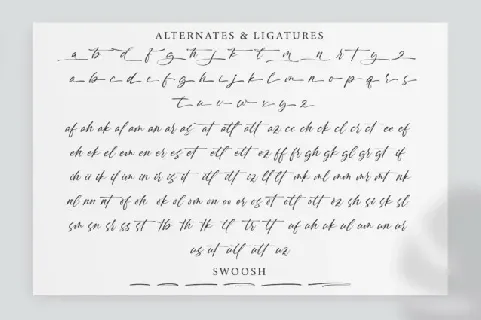 ALTERNATES & LIGATURES
a b d f g h j k t m n r t y z
a b c d e f g h i j k l m n o p q r s
t u v w x y z
af ah ak al am an ar as at att alt az cc ch ck cl cr ct ee ef
eh ek el em en er es et ell elt ez ff fr gh gk gl gr gt if
ih ii ik il im in ir is it ill ilt iz ll lt mk ml mm mr mt nk
nl nn nt of oh ok ol om on oo or os ot oll olt oz sh si sk sl
sm sn sr ss st th tk tl tr tt uf uh uk ul um un ur
us ut ull ult uz
SWOOSH